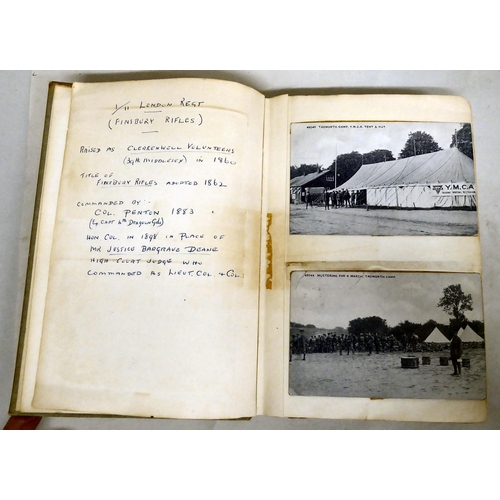 1/11 LONDON REGT
(FINSBURY RIFLES)
RAISED AS CLERKENWELL VOLUNTEERS
(39TH MIDDLESEX) IN 1860
TITLE OF
FINSBURY RIFLES ADOPTED 1862
COMMANDED BY -
COL. PENTON 1883
HON. COL. IN 1898 IN PLACE OF
MR JESSICE BARGRAVE DEANE
HIGH COURT JUDGE WHO
COMMANDED AS LIEUT. COL. & COL.
TADWORTH CAMP, Y.M.C.A. TENT & HUT
Y.M.C.A.
MUSTERING FOR A MARCH, TADWORTH CAMP.